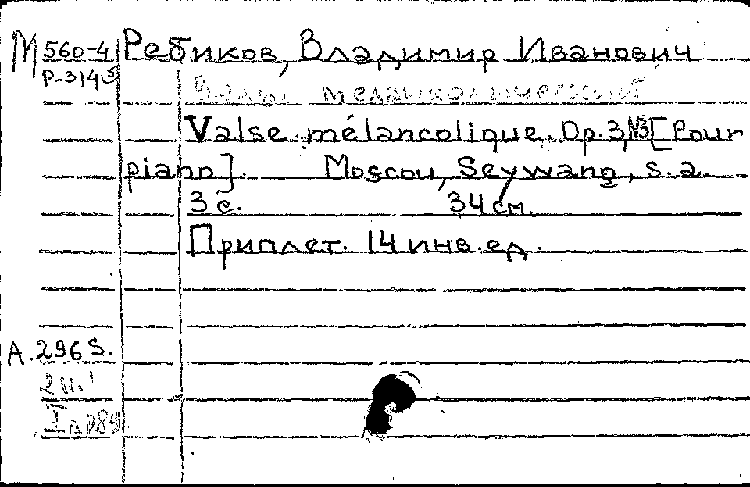 М 560-4 Ребиков, Владимир Иванович
Р-3145
Вальс меланхолический
Valse mélancolique. Op. 3, №3 [Pour
piano]. Moscou, Seywang, s. a.
3 с. 34 см.
Приплет. 14 инв. ед.
А. 296 S.
2 и.